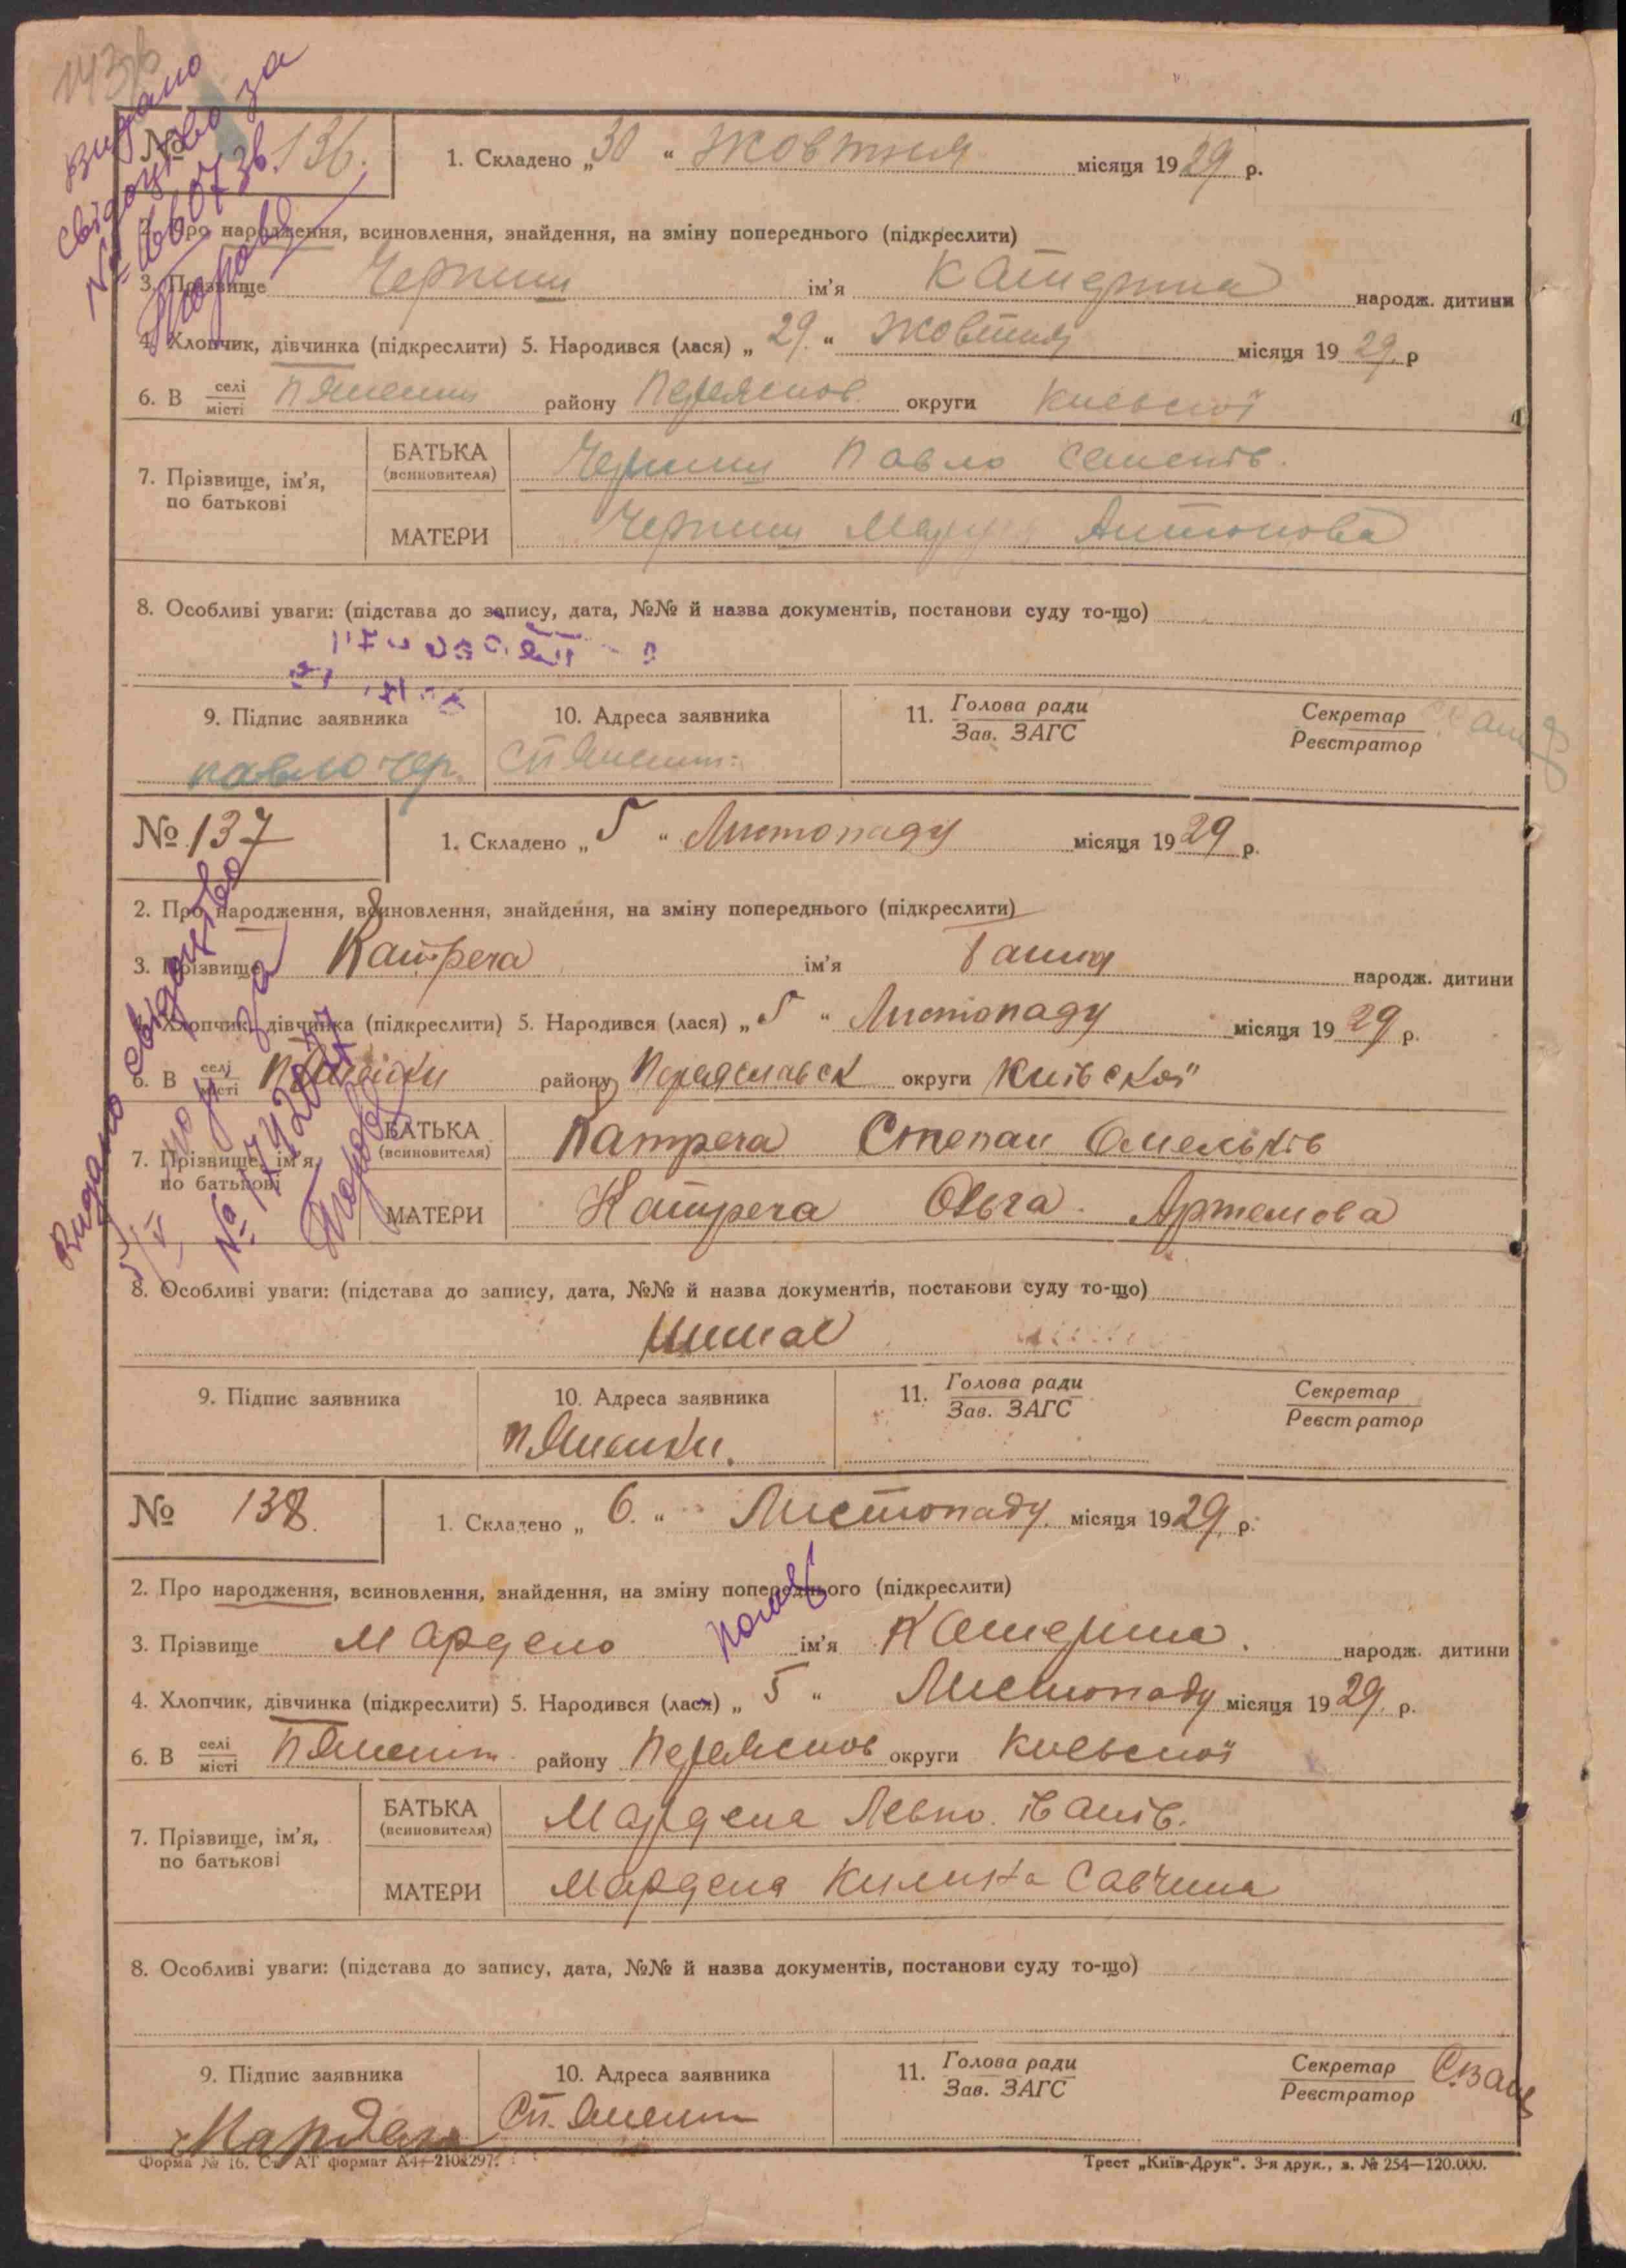 143
Видано
свідоцтво за
№ 136.
1. Складено „30“ жовтня місяця 1929 р.
2. Про народження, всиновлення, знайдення, на зміну попереднього (підкреслити)
3. Прізвище Черниш ім'я Катерина народж. дитини
4. Хлопчик, дівчинка (підкреслити) 5. Народився (лася) „29.“ жовтня місяця 1929. р
6. В селі місті району Переяслов. округи Киевської
7. Прізвище, ім'я, по батькові
БАТЬКА (всиновителя) Черниш Павло Семенів.
МАТЕРИ Черниш Антонова
8. Особливі уваги: (підстава до запису, дата, №№ й назва документів, постанови суду то-що)
9. Підпис заявника
10. Адреса заявника
11. Голова ради Зав. ЗАГС
Секретар Реєстратор
павло чер.
№ 137
1. Складено „5“ Листопаду місяця 1929 р.
2. Про народження, всиновлення, знайдення, на зміну попереднього (підкреслити)
3. Прізвище Катреча ім'я Ганна народж. дитини
4. Хлопчик, дівчинка (підкреслити) 5. Народився (лася) „5“ Листопаду місяця 1929 р.
6. В селі місті району Переяславськ округи Київської
Видано свідоцтво
за
7. Прізвище, ім'я, по батькові
БАТЬКА (всиновителя) Катреча Степан Омельків
МАТЕРИ Катреча Ольга Артемова
8. Особливі уваги: (підстава до запису, дата, №№ й назва документів, постанови суду то-що)
9. Підпис заявника
10. Адреса заявника
11. Голова ради Зав. ЗАГС
Секретар Реєстратор
№ 138.
1. Складено „6.“ Листопаду місяця 1929, р.
2. Про народження, всиновлення, знайдення, на зміну попереднього (підкреслити)
3. Прізвище ім'я Катерина. народж. дитини
4. Хлопчик, дівчинка (підкреслити) 5. Народився (лася) „5“ Листопаду місяця 1929. р.
6. В селі місті району Переяслов округи Киевської
7. Прізвище, ім'я, по батькові
БАТЬКА (всиновителя) Левко Іванів.
МАТЕРИ Килина Савчина
8. Особливі уваги: (підстава до запису, дата, №№ й назва документів, постанови суду то-що)
9. Підпис заявника
10. Адреса заявника
11. Голова ради Зав. ЗАГС
Секретар Реєстратор
Форма № 16. Ст. АТ формат А4—210х297.
Трест „Київ-Друк“. 3-я друк., з. № 254—120.000.